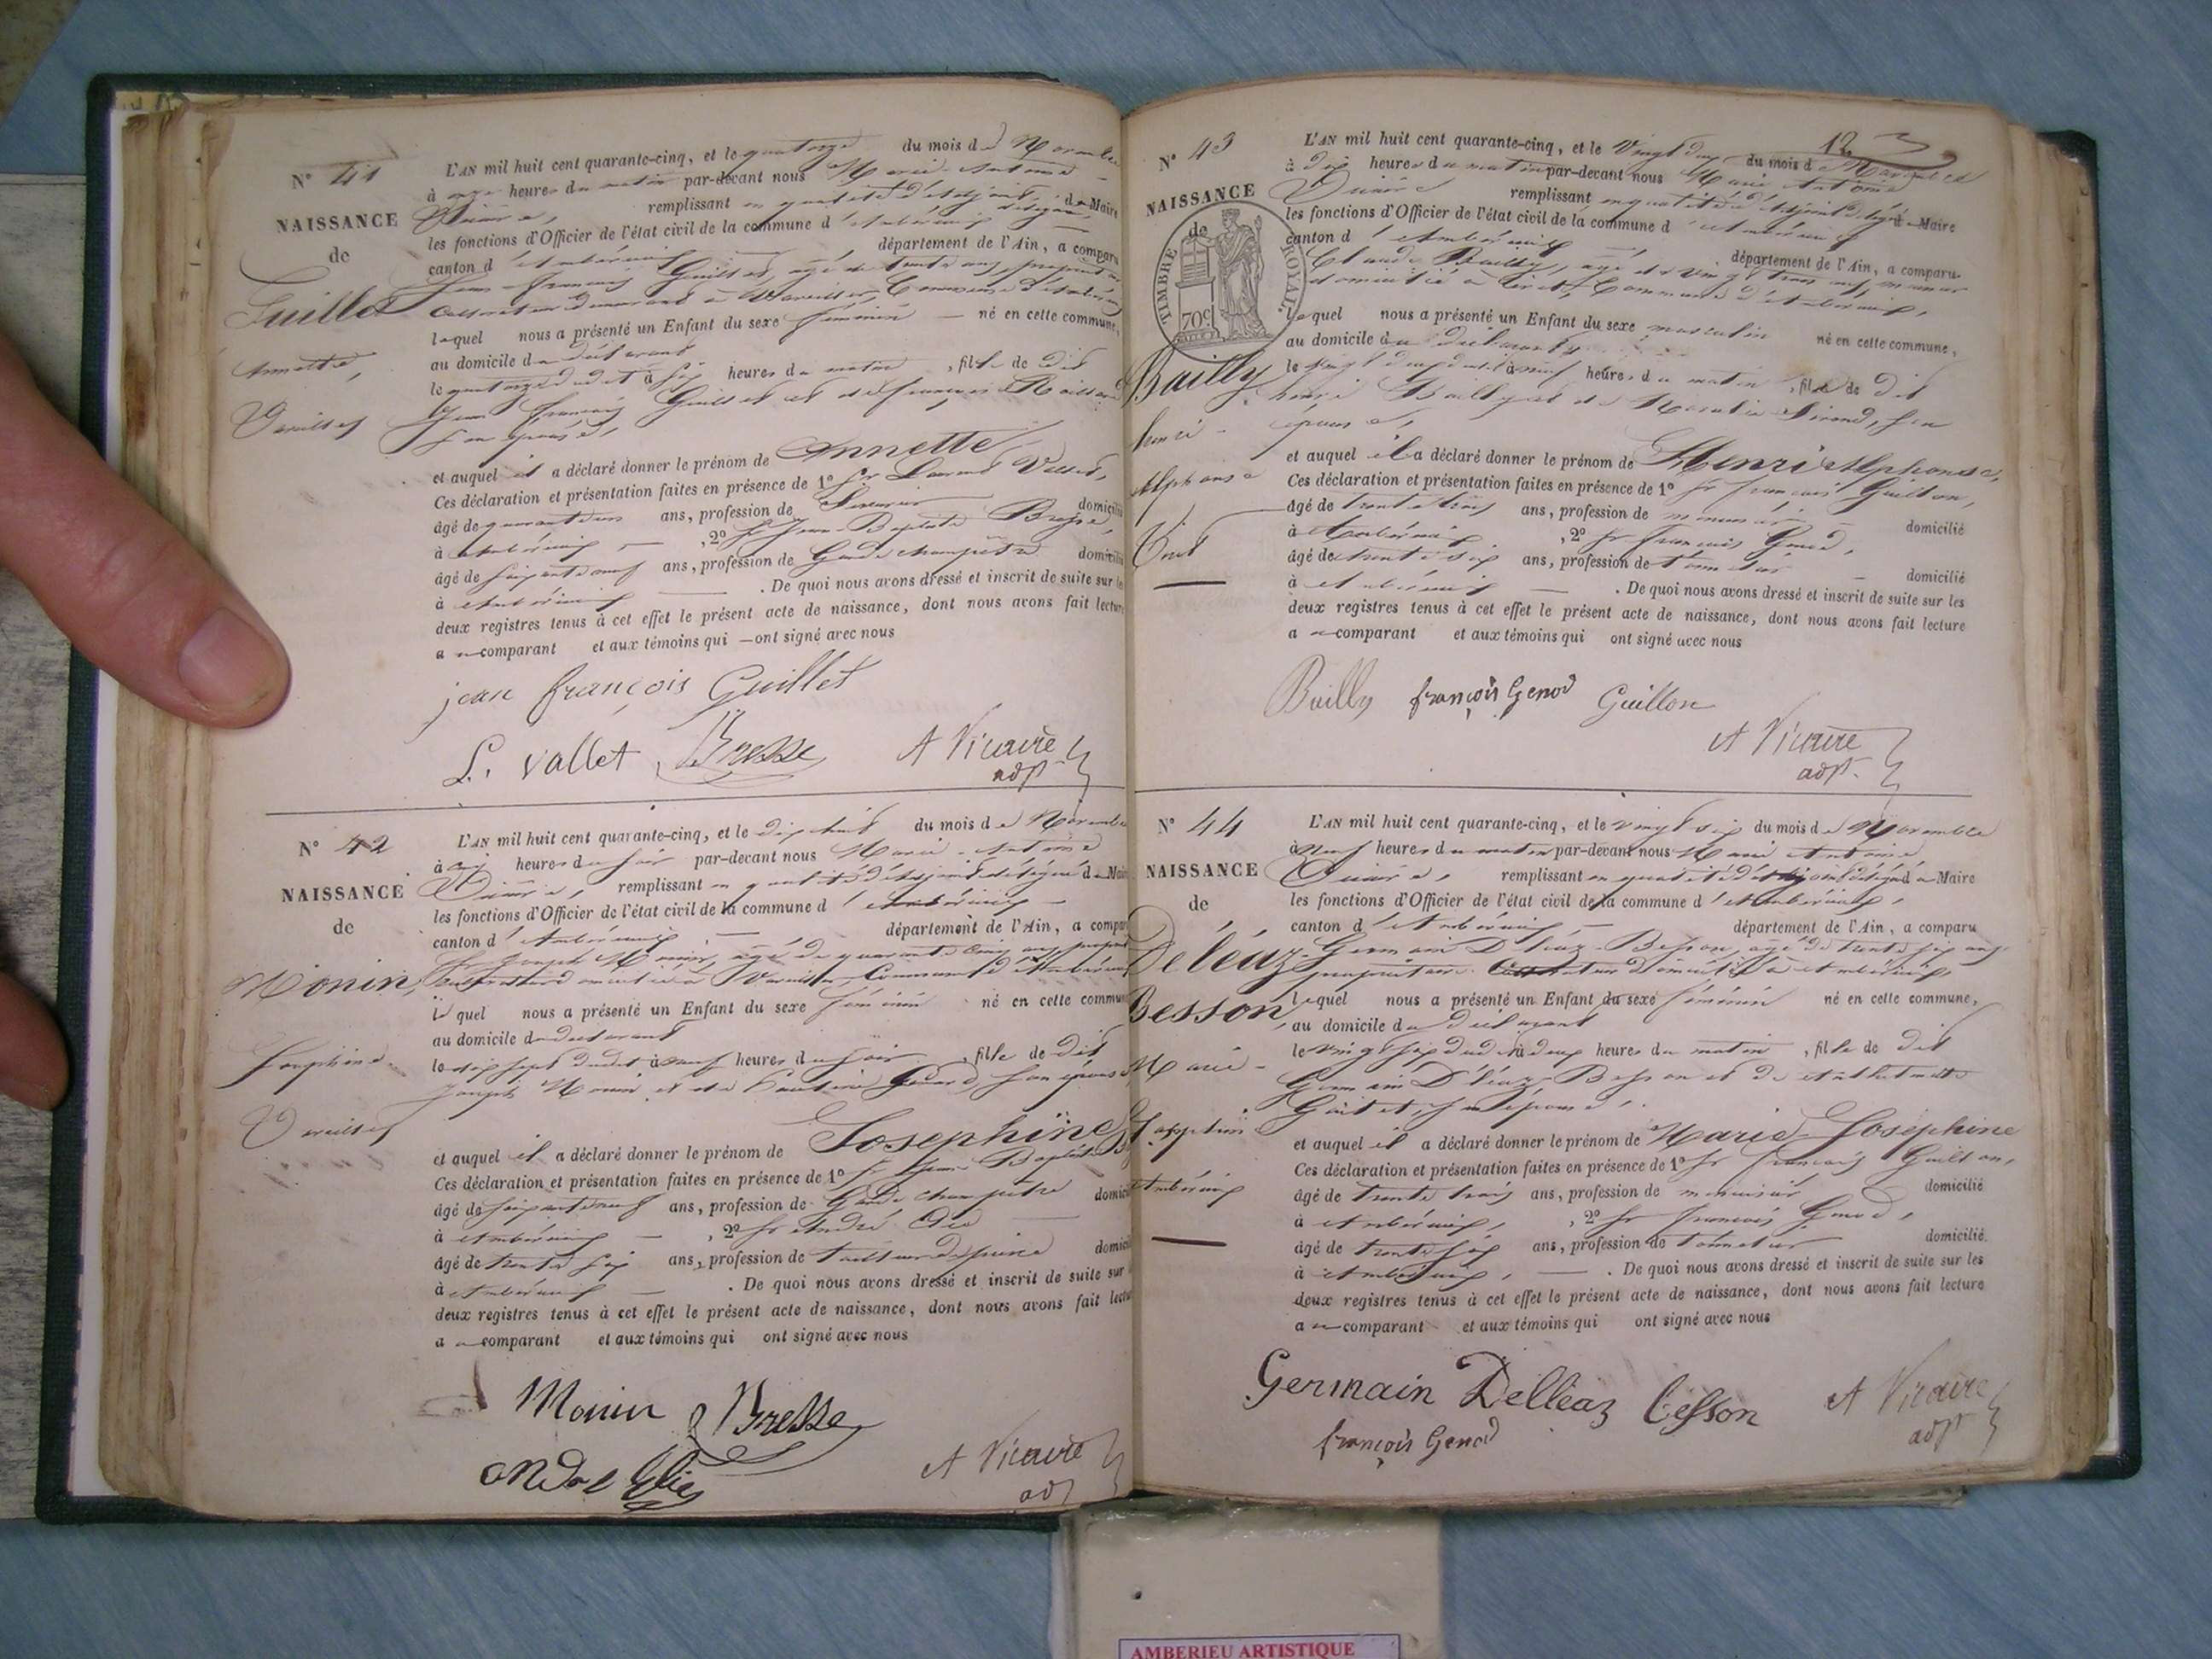 N° 41
NAISSANCE
de
Guillet
Annette,
Vareilles
L'AN mil huit cent quarante-cinq, et le quatorze du mois de Novembre
à onze heures du matin par-devant nous Marie-Antoine
Vicaire, remplissant en qualité d'adjoint délégué, de Maire
les fonctions d'Officier de l'état civil de la commune d'Ambérieux
canton d'Ambérieux département de l'Ain, a comparu
Jean François Guillet, agé de trente ans, propriétaire
Cultivateur demeurant à Vareilles, Commune d'Ambérieux
lequel nous a présenté un Enfant du sexe féminin né en cette commune,
au domicile du déclarant
le quatorze dudit à six heures du matin, fille de dit
Jean François Guillet et de françoise
son épouse,
et auquel il a déclaré donner le prénom de Annette
Ces déclaration et présentation faites en présence de 1° Sr Laurent Vallet,
âgé de quarante ans, profession de domicilié
à Ambérieux, 2° Sr Jean-Baptiste Bresse,
âgé de soixante neuf ans, profession de Garde champêtre domicilié
à Ambérieux. De quoi nous avons dressé et inscrit de suite sur les
deux registres tenus à cet effet le présent acte de naissance, dont nous avons fait lecture
au comparant et aux témoins qui ont signé avec nous
jean françois Guillet
L. Vallet Bresse A Vicaire
adjt
N° 42
NAISSANCE
de
Monin,
Josephine
Vareilles
L'AN mil huit cent quarante-cinq, et le dix huit du mois de Novembre
à cinq heures du soir par-devant nous Marie-Antoine
Vicaire, remplissant en qualité d'adjoint délégué de Maire
les fonctions d'Officier de l'état civil de la commune d'Ambérieux
canton d'Ambérieux département de l'Ain, a comparu
Sr Joseph Monin, agé de quarante cinq ans, propriétaire
Cultivateur domicilié à Vareilles, Commune d'Ambérieux
lequel nous a présenté un Enfant du sexe féminin né en cette commune
au domicile du déclarant
le dix sept dudit à neuf heures du soir, fille de dit
Joseph Monin et de Gérard, son épouse
et auquel il a déclaré donner le prénom de Josephine
Ces déclaration et présentation faites en présence de 1° Sr Jean-Baptiste
âgé de soixante neuf ans, profession de Garde champêtre domicilié
à Ambérieux, 2° Sr André
âgé de trente six ans, profession de tailleur de pierre domicilié
à Ambérieux. De quoi nous avons dressé et inscrit de suite sur
deux registres tenus à cet effet le présent acte de naissance, dont nous avons fait lecture
au comparant et aux témoins qui ont signé avec nous
Monin Bresse
A Vicaire
adj
12
N° 43
NAISSANCE
de
TIMBRE ROYAL.
70c
Bailly
henri
Alphonse
Tiret
L'AN mil huit cent quarante-cinq, et le Vingt deux du mois de Novembre
à dix heures du matin par-devant nous Marie Antoine
Vicaire remplissant en qualité d'adjoint délégué de Maire
les fonctions d'Officier de l'état civil de la commune d'Ambérieux
canton d'Ambérieux département de l'Ain, a comparu
Claude Bailly, agé de vingt trois ans,
domicilié à Tiret, Commune d'Ambérieux,
lequel nous a présenté un Enfant du sexe masculin né en cette commune,
au domicile du déclarant
le vingt deux dudit à neuf heures du matin, fils de dit
henri Bailly et de Rosalie Sirand, son
épouse,
et auquel il a déclaré donner le prénom de Henri Alphonse,
Ces déclaration et présentation faites en présence de 1° Sr françois Guillon,
âgé de trente trois ans, profession de menuisier domicilié
à Ambérieux, 2° Sr françois Genod,
âgé de trente six ans, profession de domicilié
à Ambérieux. De quoi nous avons dressé et inscrit de suite sur les
deux registres tenus à cet effet le présent acte de naissance, dont nous avons fait lecture
au comparant et aux témoins qui ont signé avec nous
Bailly françois Genod Guillon
A Vicaire
adjt.
N° 44
NAISSANCE
de
Deléaz
Besson,
Marie
Josephine
Ambérieux
L'AN mil huit cent quarante-cinq, et le vingt six du mois de Novembre
à neuf heures du matin par-devant nous Marie Antoine
Vicaire, remplissant en qualité d'adjoint délégué de Maire
les fonctions d'Officier de l'état civil de la commune d'Ambérieux,
canton d'Ambérieux département de l'Ain, a comparu
Germain Déléaz-Besson, agé de trente six ans
propriétaire domicilié à Ambérieux
lequel nous a présenté un Enfant du sexe féminin né en cette commune,
au domicile du déclarant
le vingt six dudit à deux heures du matin, fille de dit
Germain Déléaz-Besson et de
son épouse,
et auquel il a déclaré donner le prénom de Marie-Joséphine
Ces déclaration et présentation faites en présence de 1° Sr françois Guillon,
âgé de trente trois ans, profession de menuisier domicilié
à Ambérieux, 2° Sr françois Genod,
âgé de trente six ans, profession de domicilié
à Ambérieux, . De quoi nous avons dressé et inscrit de suite sur les
deux registres tenus à cet effet le présent acte de naissance, dont nous avons fait lecture
au comparant et aux témoins qui ont signé avec nous
Germain Delleaz besson A Vicaire
françois Genod adjt
AMBERIEU ARTISTIQUE